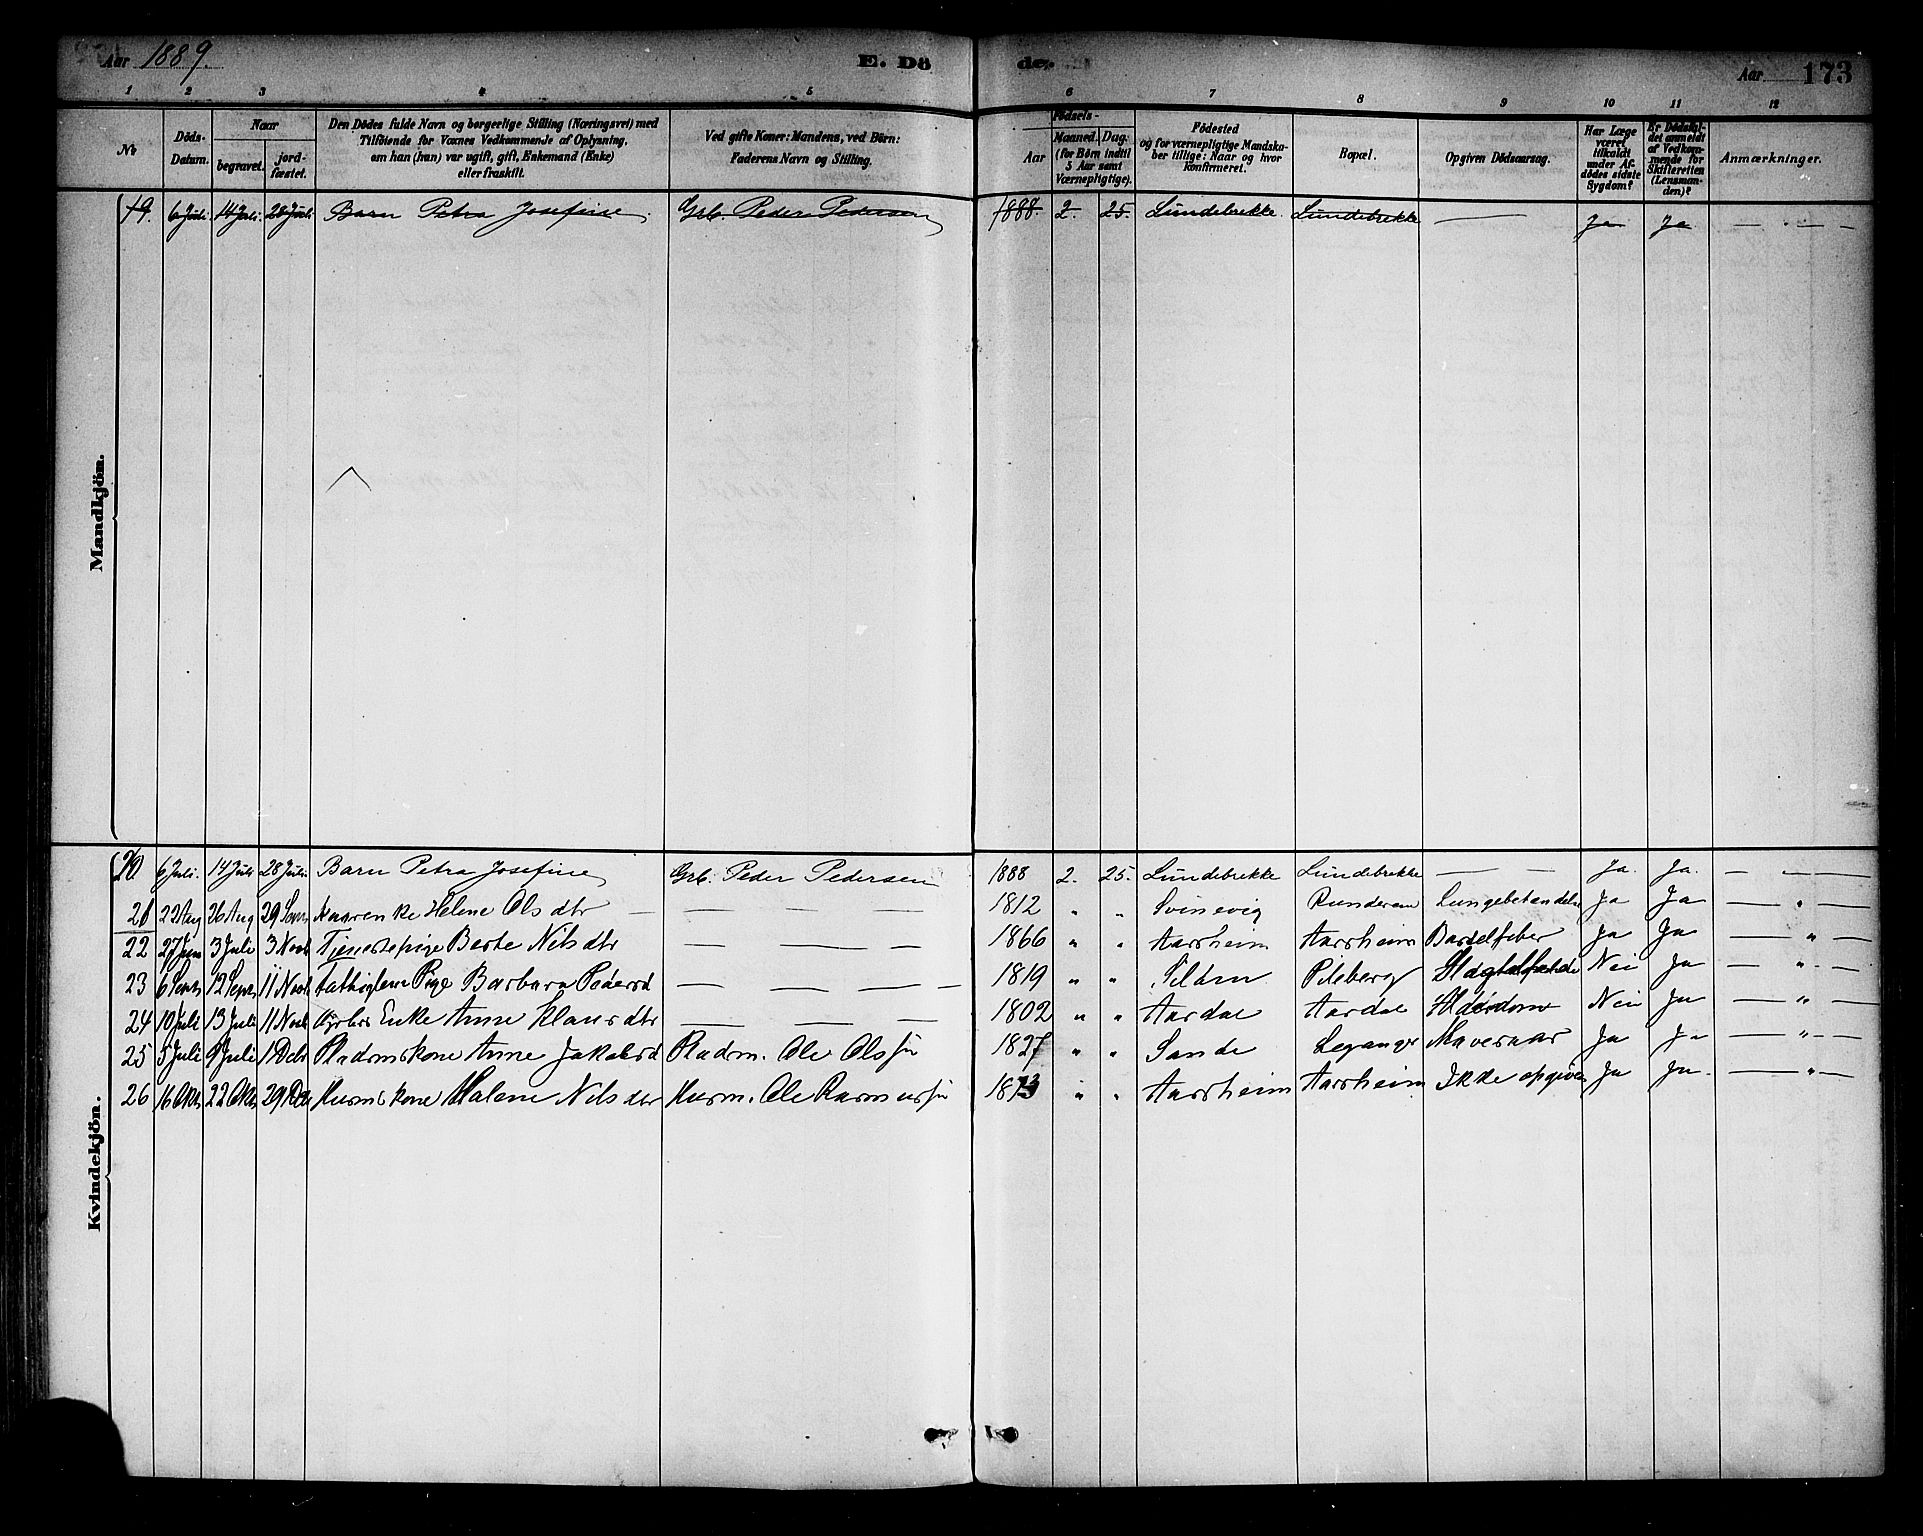 Aar 1889. E. Dö de. Aar 173
1 2 3 4 5 6 7 8 9 10 11 12
No
Döds-Datum.
Naar
begravet.
jord-fæstet.
Den Dödes fulde Navn og borgerlige Stilling (Næringsvei) med
Tilföiende for Voxnes Vedkommende af Oplysning,
om han (hun) var ugift, gift, Enkemand (Enke)
eller fraskilt.
Ved gifte Koner: Mandens, ved Börn:
Faderens Navn og Stilling.
Födsels-
Aar
Maaned. Dag.
(for Börn indtil
5 Aar samt
Værnepligtige).
Födested
og for værnepligtige Mandska-
ber tillige: Naar og hvor
konfirmeret.
Bopæl.
Opgiven Dödsaarsag.
Har Læge
været
tilkaldt
under Af-
dödes sidste
Sygdom?
Er Dödsfal-
det anmeldt
af Vedkom-
mende for
Skifteretten
(Lensman-
den)?
Anmærkninger.
Mandkjön.
19. 6 Juli 14 Juli. 28 Juli Barn Petra Josefine. Grb. Peder Pedersen 1888. 2. 25. Lundebrekke. Lundebrekke — Ja Ja — . — —
Kvindekjön.
20 6 Juli. 14 Juli 28 Juli. Barn Petra Josefine Grb. Peder Pedersen 1888 2. 25. Lundebrekke Lundebrekke — — Ja. Ja. — . — —
21 22 Aug 26 Aug 29 Helene Olsdtr — — — — 1812 " " Svinevig Runderem Lungebetændelse Ja Ja — " —
22 27 Jun 3 Juli 3 Novb Tjenestepige Berte Nilsdtr — — — 1866 " " Aarsheim Aarsheim Barselfeber Ja Ja — " —
23 6 Septr 12 Septr 11 Novb Pige Barbara Pedersd — — — — 1819 " " Silden Pileberg Nei Ja — " —
24 10 Juli 13 Juli 11 Novb Enke Anne Klausdtr — — — 1802 " " Aardal Aardal Nei Ja — " —
25 5 Juli 9 Juli 1 Debr Pladsmskone Anne Jakobsd Pladsm. Ole Olssøn 1827 " " Sande Leganger Ja Ja — " —
26 16 Oktr 22 Oktr 29 Husmskone Malene Nilsdtr Husm. Ole Rasmussøn " " Aarsheim Aarsheim Ikke opgiven Ja Ja. — " —